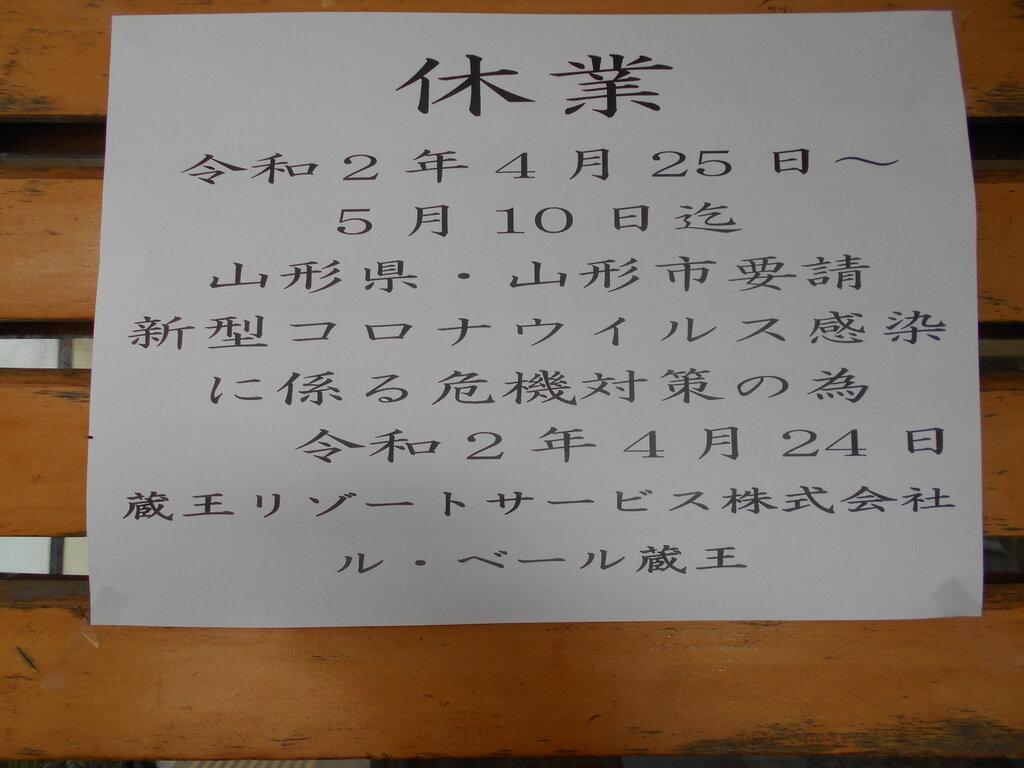 休業
令和2年4月25日～
5月10日迄
山形県・山形市要請
新型コロナウイルス感染
に係る危機対策の為
令和2年4月24日
蔵王リゾートサービス株式会社
ル・ベール蔵王